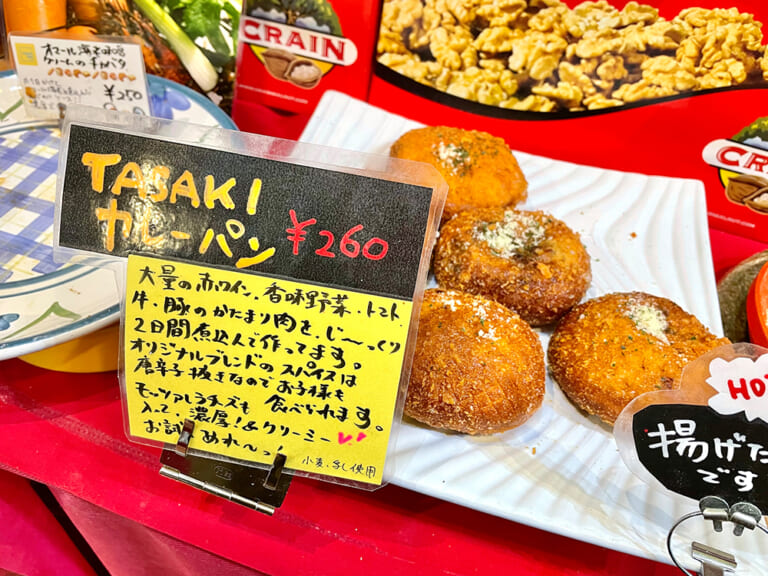 オマール海老味噌
クリームのチャバタ
¥250
CRAIN
CRA
TASAKI
カレーパン ¥260
大量の赤ワイン、香味野菜、トマト、
牛、豚のかたまり肉を、じ〜っくり
2日間煮込んで作ってます。
オリジナルブレンドのスパイスは
唐辛子抜きなのでお子様も
食べられます。
モッツァレラチーズも
入って、濃厚!&クリーミー
お試しあれ〜!
小麦、乳使用
HO
揚げた
です